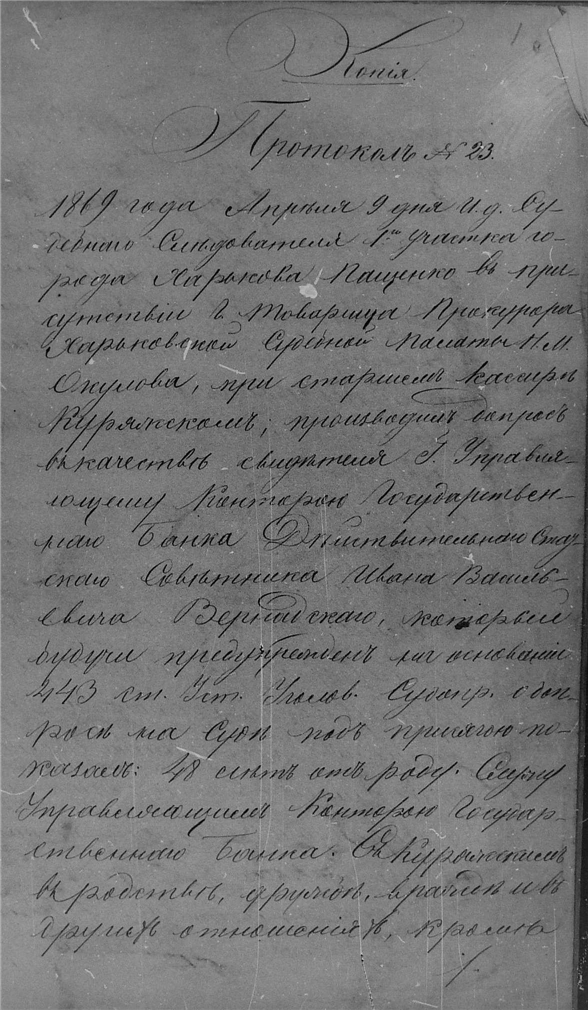 Копія.
Протоколъ № 23.
1869 года Апрѣля 9 дня И. д. Су-
дебнаго Слѣдователя 1го участка го-
рода Харькова Пащенко въ при-
сутствіи Г. Товарища Прокурора
Харьковской Судебной Палаты Н. М.
Окулова, при старшемъ кассирѣ
Куряжскомъ; производилъ допросъ
въ качествѣ свидѣтеля Г. Управля-
ющему Конторою Государствен-
наго Банка Дѣйствительнаго Стат
скаго Совѣтника Ивана Василь-
евича Вернадскаго, который
будучи предупрежденъ на основаніи
443 ст. Уст. Уголов. Судопр. о доп-
росѣ на Судѣ подъ присягою по-
казалъ: 48 лѣтъ отъ роду. Служу
Управляющимъ Конторою Государ-
ственнаго Банка. Съ Куряжскимъ
въ родствѣ, дружбѣ, враждѣ и въ
другихъ отношеніяхъ, кромѣ